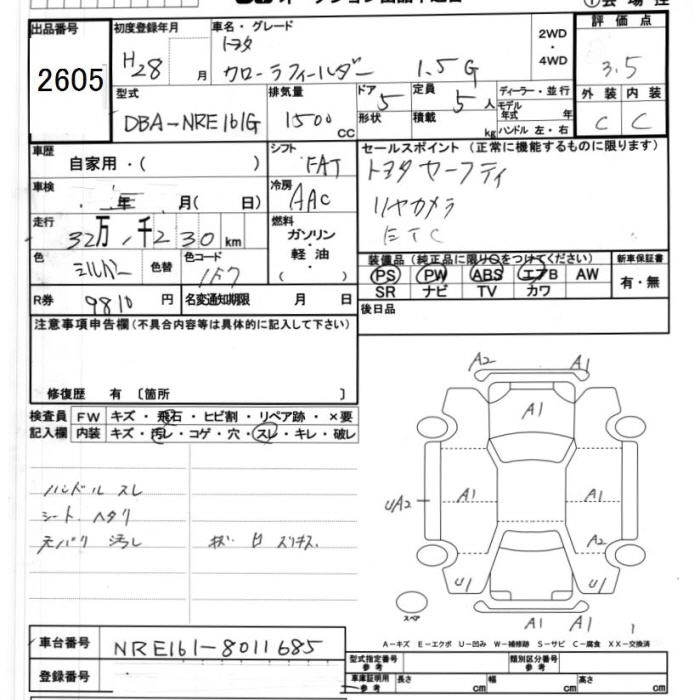 出品番号
2605
初度登録年月
H28 月
車名・グレード
トヨタ
カローラフィールダー 1.5G
2WD
・
4WD
評価点
3.5
型式
DBA-NRE161G
排気量
1500 cc
ドア
5
定員
5 人
形状
積載 kg
ディーラー・並行
モデル年式 年
ハンドル 左・右
外装 内装
C C
車歴
自家用・( )
シフト
FAT
車検
年 月( 日)
冷房
AAC
走行
32万 千230 km
燃料
ガソリン
・
軽油
( )
色
シルバー
色替
色コード
1F7
R券 9810 円
名変通知期限 月 日
セールスポイント (正常に機能するものに限ります)
トヨタセーフティ
リヤカメラ
ETC
装備品 (純正品に限り○をつけてください)
PS PW ABS エアB AW
SR ナビ TV カワ
新車保証書
有・無
後日品
注意事項申告欄(不具合内容等は具体的に記入して下さい)
修復歴 有 〔箇所 〕
検査員 FW キズ・飛石・ヒビ割・リペア跡・×要
記入欄 内装 キズ・汚レ・コゲ・穴・スレ・キレ・破レ
ハンドル スレ
シート ヘタリ
天バリ 汚レ
A2 A1
A1
UA2 A1 A1
A2
U1 U1
スペア
A1 A1
A-キズ E-エクボ U-凹み W-補修跡 S-サビ C-腐食 XX-交換済
車台番号 NRE161-8011685
登録番号
型式指定番号
参考
類別区分番号
参考
車庫証明用
参考
長さ cm 幅 cm 高さ cm